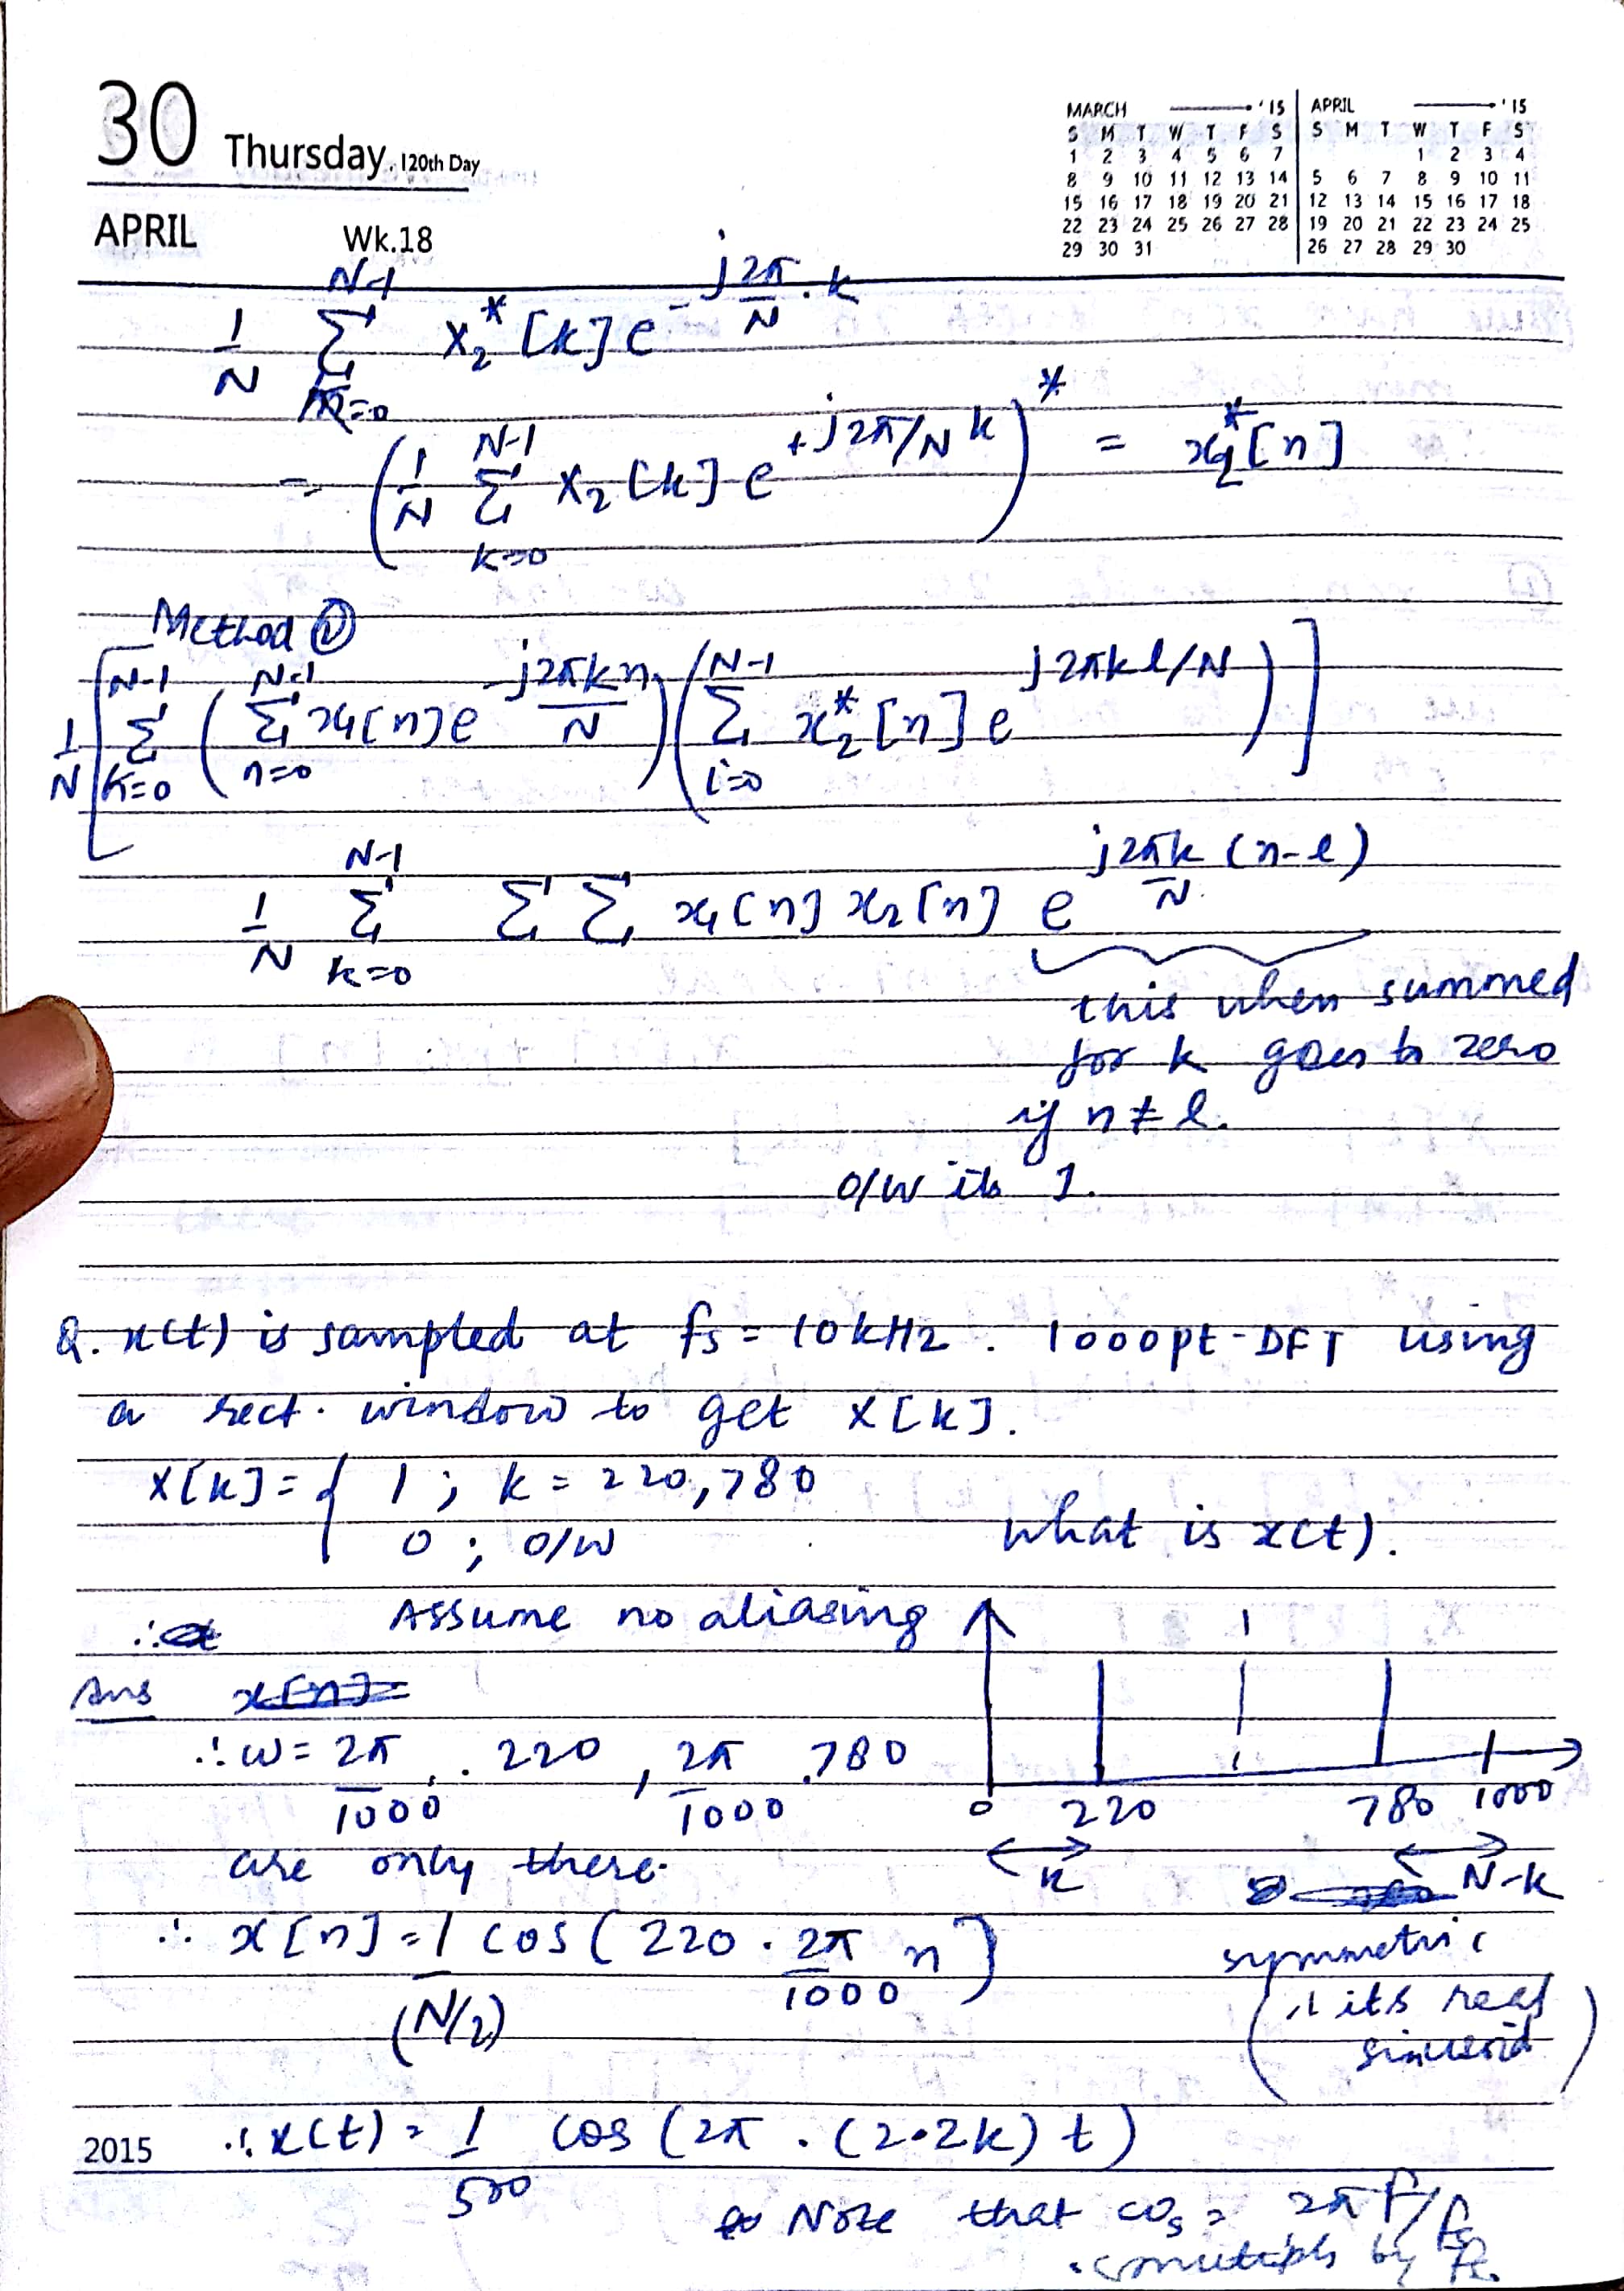 30 Thursday, 120th Day
APRIL Wk.18
MARCH '15
S M T W T F S
1 2 3 4 5 6 7
8 9 10 11 12 13 14
15 16 17 18 19 20 21
22 23 24 25 26 27 28
29 30 31
APRIL '15
S M T W T F S
1 2 3 4
5 6 7 8 9 10 11
12 13 14 15 16 17 18
19 20 21 22 23 24 25
26 27 28 29 30
1/N Σ_{k=0}^{N-1} X₂*[k] e^{-j2π/N . k}
= (1/N Σ_{k=0}^{N-1} X₂[k] e^{+j2π/N k})* = x₂*[n]
Method ②
1/N [Σ_{k=0}^{N-1} (Σ_{n=0}^{N-1} x₁[n] e^{-j2πkn/N}) (Σ_{l=0}^{N-1} x₂*[n] e^{j2πkl/N})]
1/N Σ_{k=0}^{N-1} Σ Σ x₁[n] x₂[n] e^{j2πk/N (n-l)}
this when summed
for k goes to zero
if n ≠ l.
O/W its 1.
Q. x(t) is sampled at fs = 10kHz. 1000pt-DFT using
a rect. window to get X[k].
X[k] = { 1 ; k = 220, 780
0 ; O/W
what is x(t).
Assume no aliasing
Ans
∴ ω = 2π/1000 . 220 , 2π/1000 . 780
are only there.
0 220 780 1000
k N-k
∴ x[n] = 1/(N/2) cos(220 . 2π/1000 n)
symmetric
(∴ its real
sinusoid)
∴ x(t) = 1/500 cos(2π . (2.2k) t)
Note that ωs = 2πf/fs
∴ multiply by fs.
2015